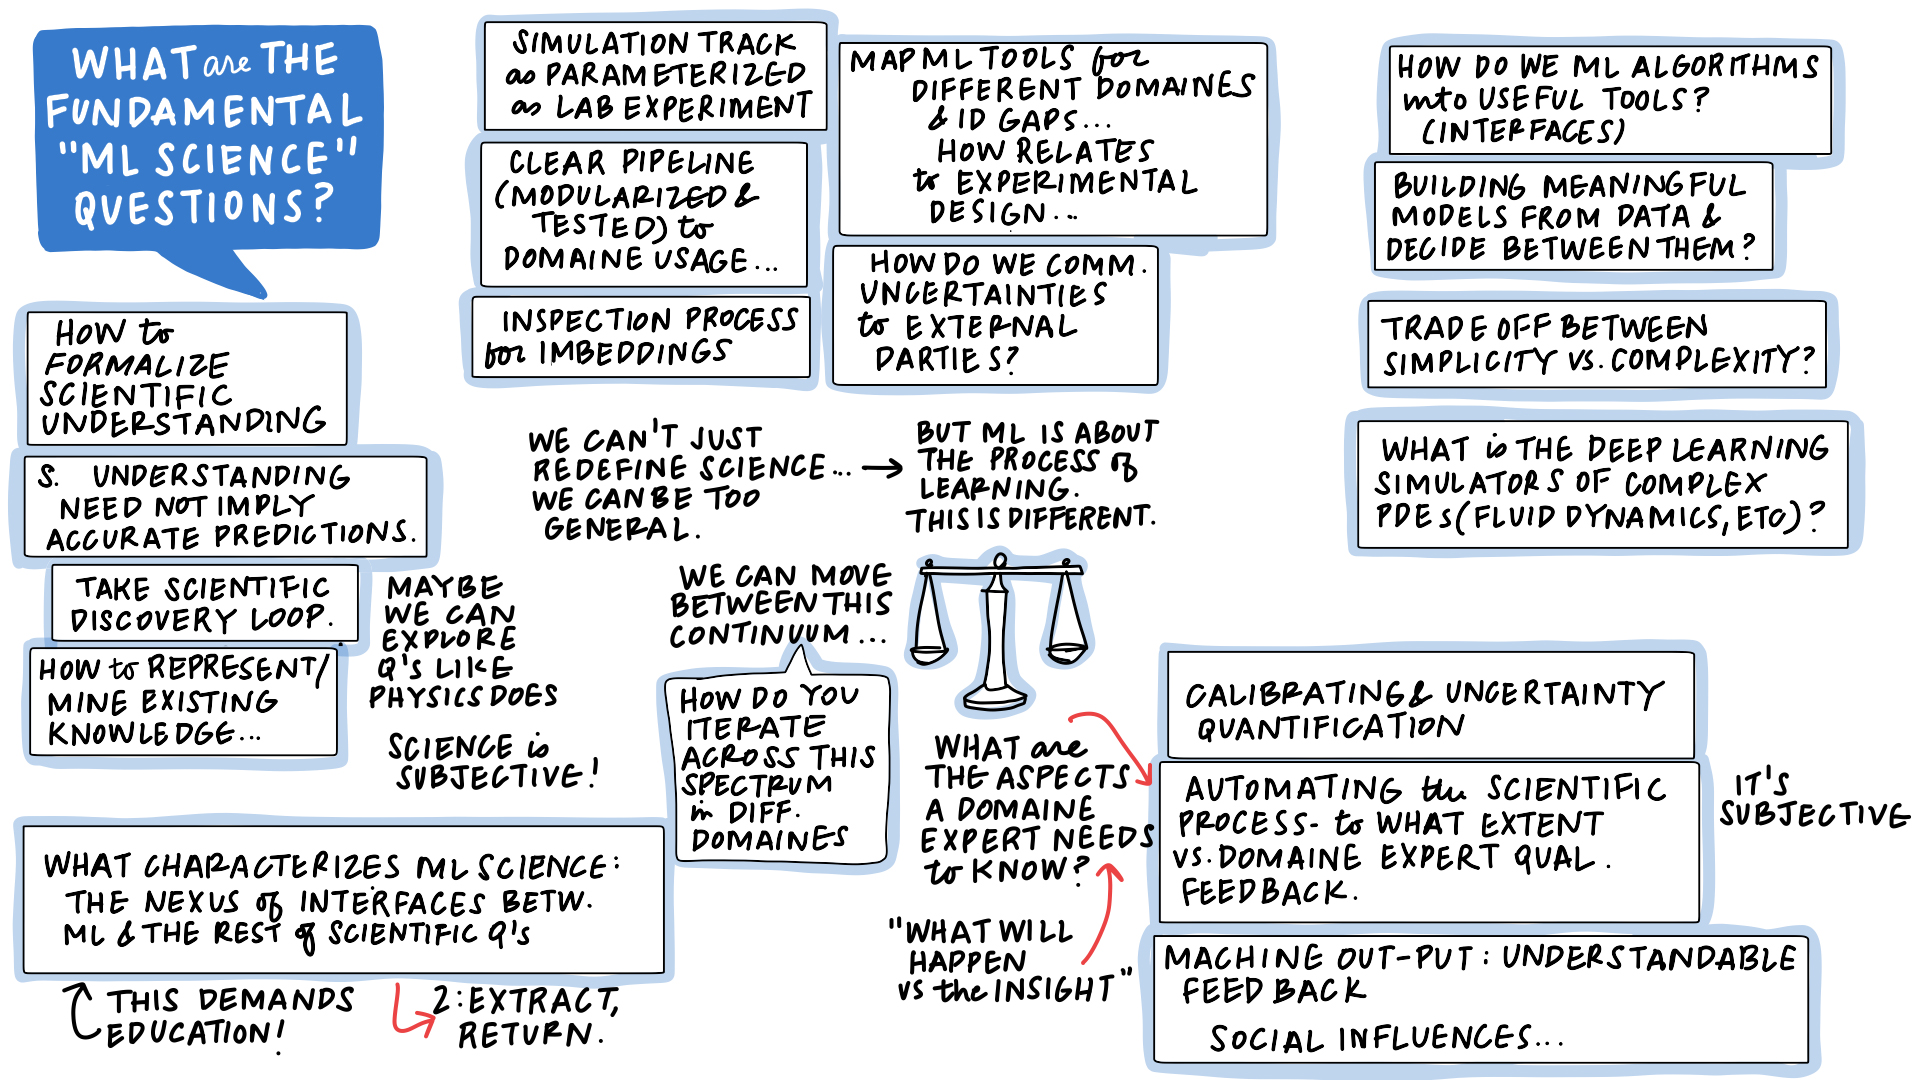 WHAT are THE
FUNDAMENTAL
"ML SCIENCE"
QUESTIONS?
HOW to
FORMALIZE
SCIENTIFIC
UNDERSTANDING
S. UNDERSTANDING
NEED NOT IMPLY
ACCURATE PREDICTIONS.
TAKE SCIENTIFIC
DISCOVERY LOOP.
HOW to REPRESENT/
MINE EXISTING
KNOWLEDGE...
MAYBE
WE CAN
EXPLORE
Q'S LIKE
PHYSICS DOES
SCIENCE is
SUBJECTIVE!
WHAT CHARACTERIZES ML SCIENCE:
THE NEXUS of INTERFACES BETW.
ML & THE REST of SCIENTIFIC Q's
THIS DEMANDS
EDUCATION!
2: EXTRACT,
RETURN.
SIMULATION TRACK
as PARAMETERIZED
as LAB EXPERIMENT
CLEAR PIPELINE
(MODULARIZED &
TESTED) to
DOMAINE USAGE...
INSPECTION PROCESS
for IMBEDDINGS
MAP ML TOOLS for
DIFFERENT DOMAINES
& ID GAPS...
HOW RELATES
to EXPERIMENTAL
DESIGN...
HOW DO WE COMM.
UNCERTAINTIES
to EXTERNAL
PARTIES?
WE CAN'T JUST
REDEFINE SCIENCE...
WE CAN BE TOO
GENERAL.
BUT ML IS ABOUT
THE PROCESS of
LEARNING.
THIS IS DIFFERENT.
WE CAN MOVE
BETWEEN THIS
CONTINUUM...
HOW DO YOU
ITERATE
ACROSS THIS
SPECTRUM
in DIFF.
DOMAINES
WHAT are
THE ASPECTS
A DOMAINE
EXPERT NEEDS
to KNOW?
"WHAT WILL
HAPPEN
VS the INSIGHT"
HOW DO WE ML ALGORITHMS
into USEFUL TOOLS?
(INTERFACES)
BUILDING MEANINGFUL
MODELS FROM DATA &
DECIDE BETWEEN THEM?
TRADE OFF BETWEEN
SIMPLICITY VS. COMPLEXITY?
WHAT is THE DEEP LEARNING
SIMULATORS OF COMPLEX
PDEs (FLUID DYNAMICS, ETC)?
CALIBRATING & UNCERTAINTY
QUANTIFICATION
AUTOMATING the SCIENTIFIC
PROCESS- to WHAT EXTENT
VS. DOMAINE EXPERT QUAL.
FEEDBACK.
IT'S
SUBJECTIVE
MACHINE OUT-PUT: UNDERSTANDABLE
FEEDBACK
SOCIAL INFLUENCES...